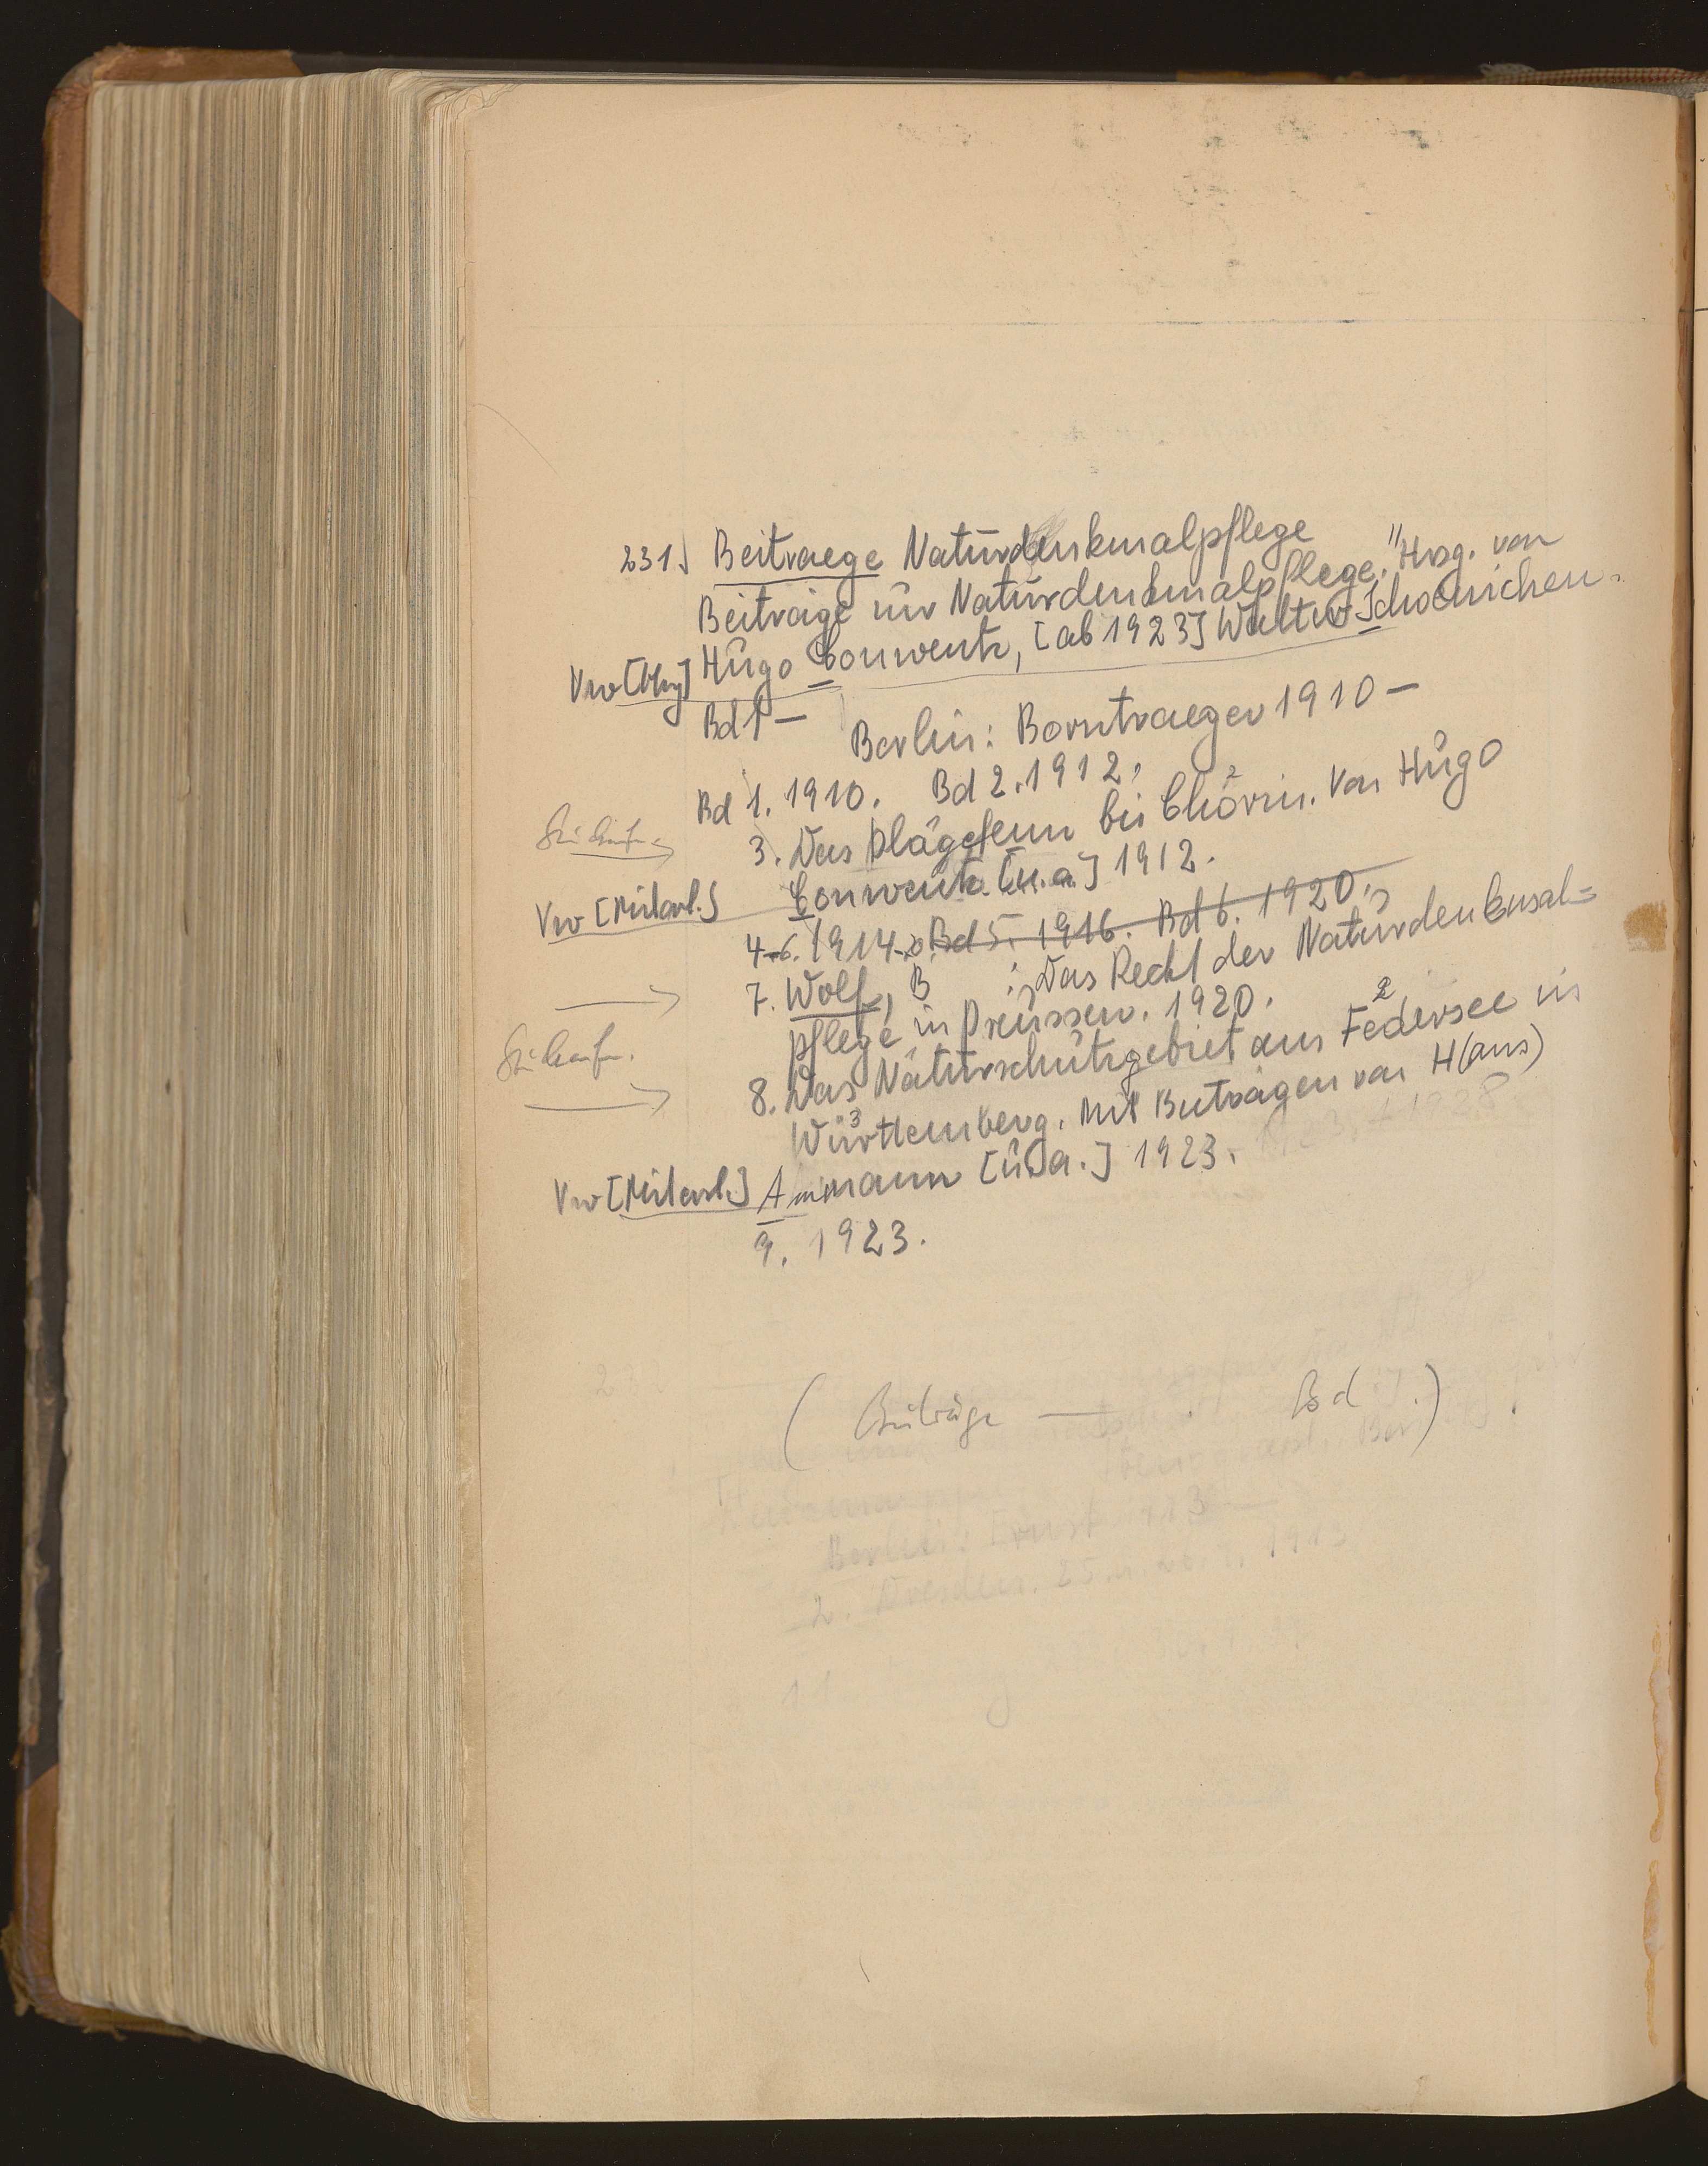 231. Beitraege Naturdenkmalpflege
Beiträge zur Naturdenkmalpflege." Hrsg. von
Vw [Hrsg] Hugo Conwentz, [ab 1923] Walter Schoenichen.
Bd 1 —
Berlin: Borntraeger 1910 —
Bd 1. 1910. Bd 2. 1912.
3. Das Plagefenn bei Chorin. Von Hugo
Vw [Mitarb.] Conwentz [u.a.] 1912.
4-6. 1914-20. Bd 5. 1916. Bd 6. 1920.
7. Wolf, B : Das Recht der Naturdenkmal=
pflege in Preussen. 1920.
8. Das Naturschutzgebiet am Federsee in
Württemberg. Mit Beiträgen von H(ans)
Vw [Mitarb.] Ammann [u.a.] 1923.
9. 1923.
( Beiträge — . Bd .)
Berlin: Ernst 1913
2. Dresden. 25. u. 26. 9. 1913
11